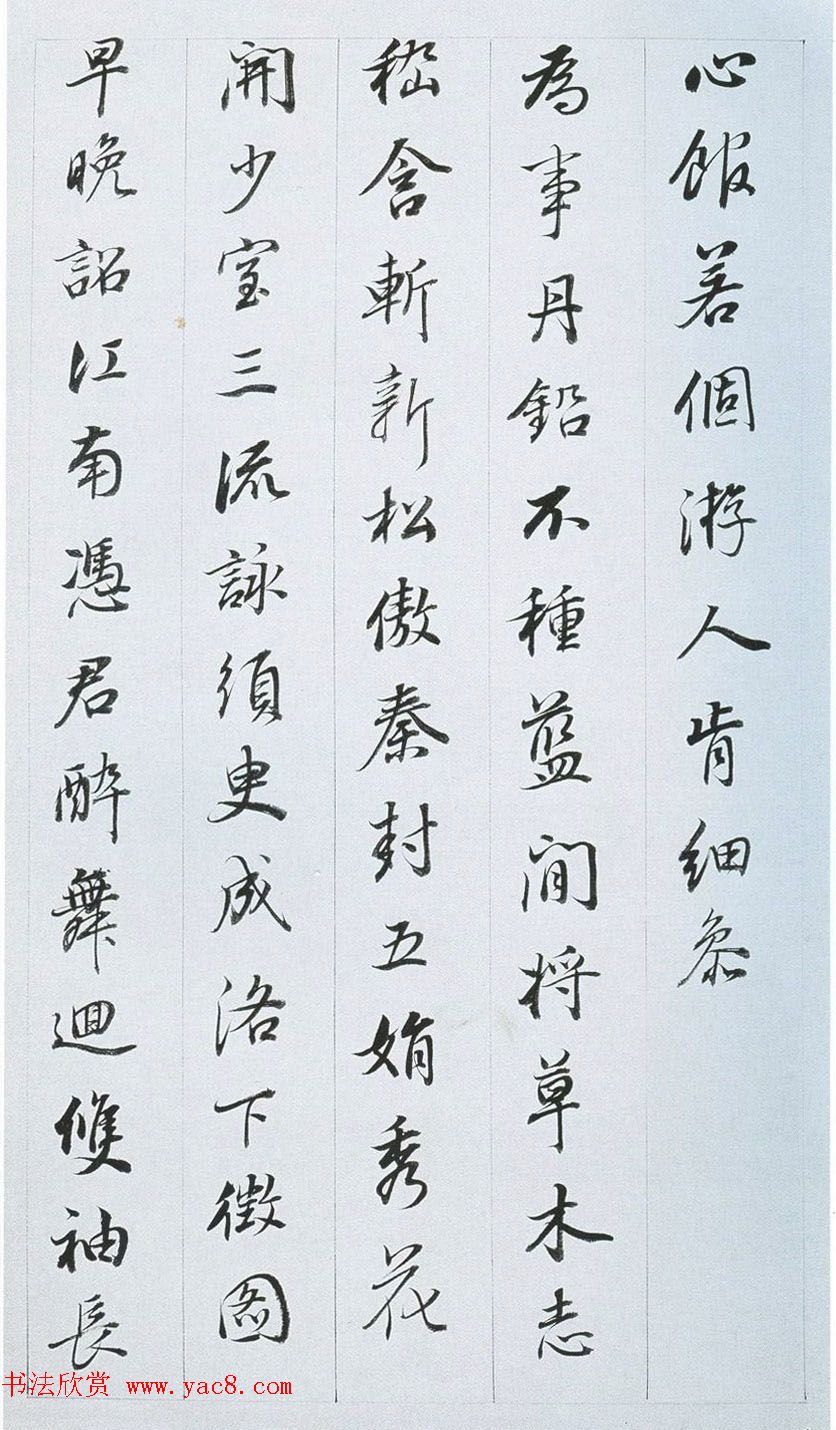 心館若個游人肯細參
為事丹鉛不種藍間將草木志
嵇含斬新松傲秦封五娟秀花
開少室三流詠須臾成洛下徵圖
早晚詔江南憑君醉舞迴雙袖長
书法欣赏 www.yac8.com